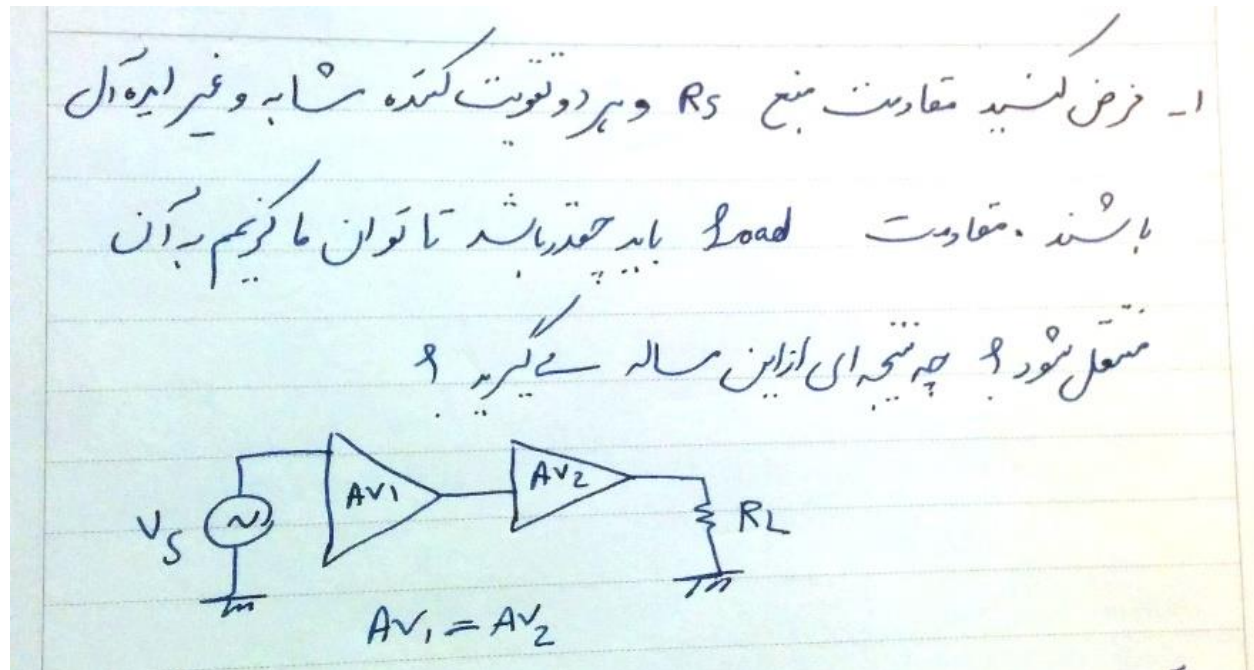 ۱- فرض کنید مقاومت منبع Rs و هر دو تقویت کننده مشابه و غیر ایده آل
باشند . مقاومت Load باید چقدر باشد تا توان ماکزیمم به آن
منتقل شود ؟ چه نتیجه ای از این مساله می گیرید ؟
Vs
AV1
AV2
RL
AV1 = AV2